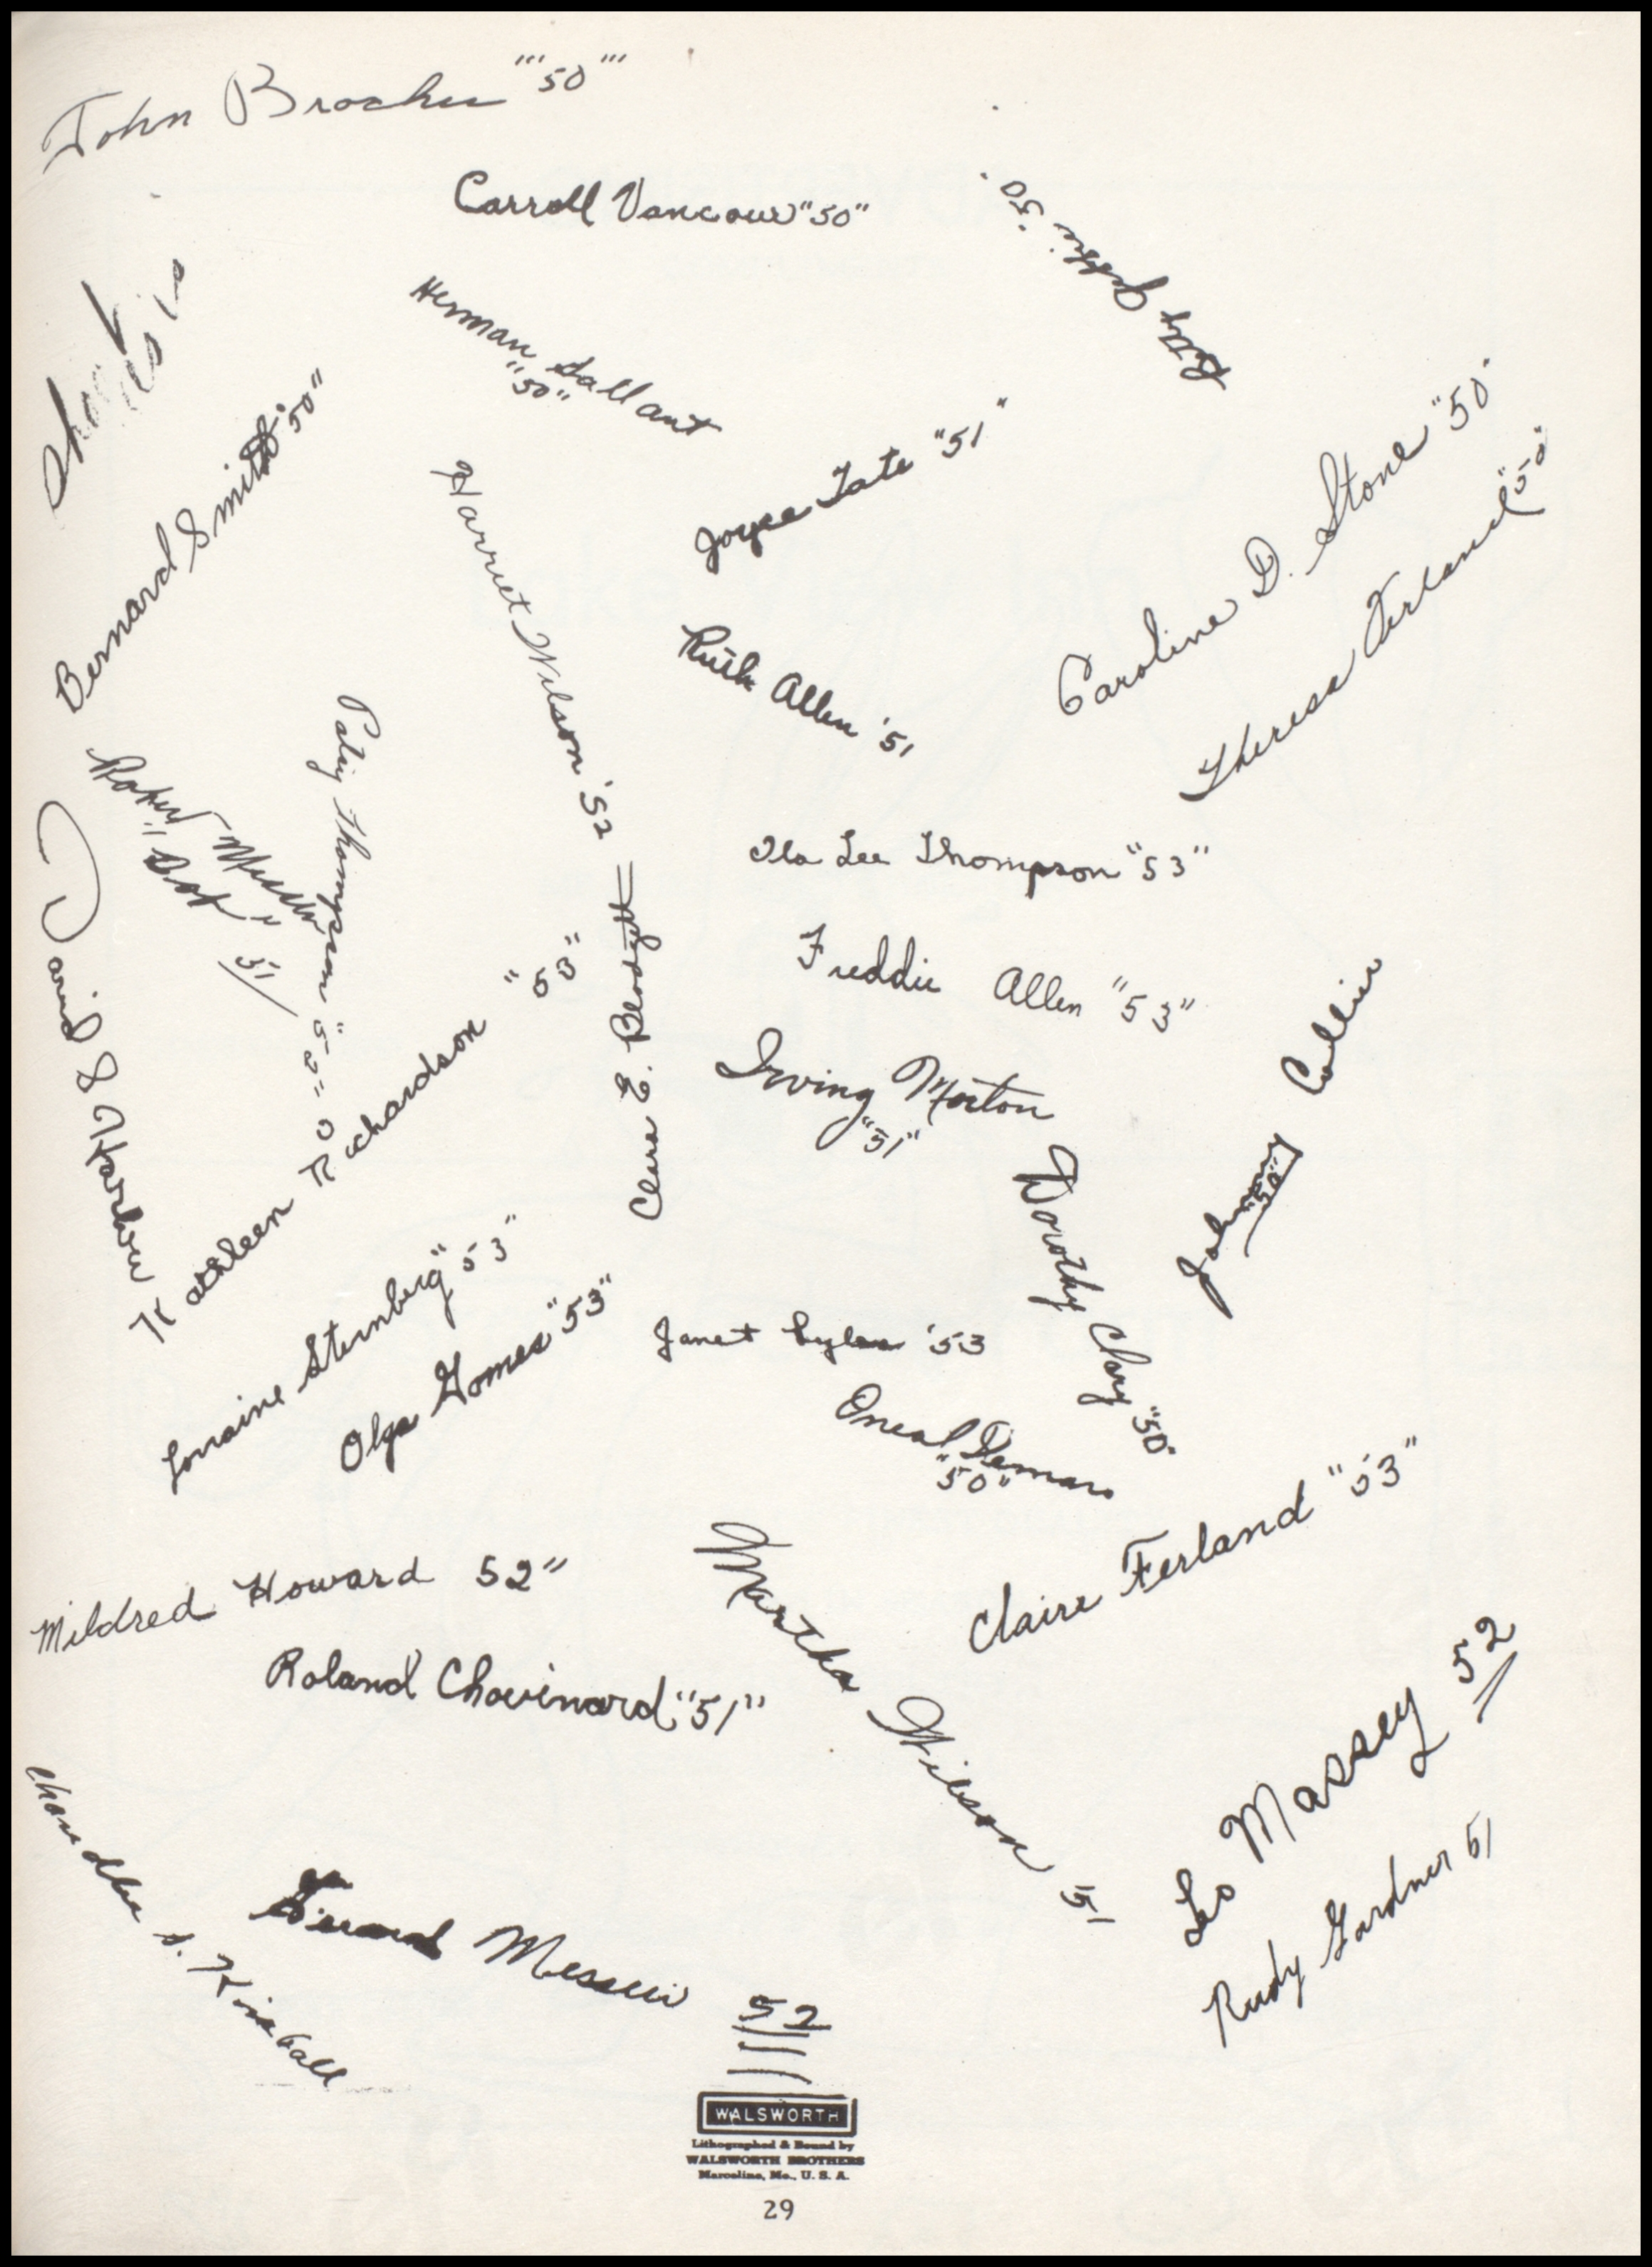 John Brochu """50"""
Carroll Vancour "50"
Betty '50
Herman Gallant
"50"
Bernard Smith "50"
Joyce Tate "51"
Caroline D. Stone "50"
Theresa Ferland "50"
Harriet Wilson '52
Ruth Allen '51
Patsy Thompson "50"
Robert
"Bob" 51
David S Harlow
Ila Lee Thompson "53"
Clara E. Blodgett
Freddie Allen "53"
Kathleen Richardson "53"
Irving Morton
"51"
Johnny Collins
"50"
Dorothy Clary "50"
Lorraine Sternberg "53"
Olga Gomes "53"
Janet '53
Oneal Demars
"50"
Claire Ferland "53"
Mildred Howard 52"
Martha Wilson '51
Roland Chovinard "51"
Leo Massey 52
Rudy Gardner 51
Chandler S. Kimball
Messier 52
WALSWORTH
Lithographed & Bound by
WALSWORTH BROTHERS
Marceline, Mo., U. S. A.
29